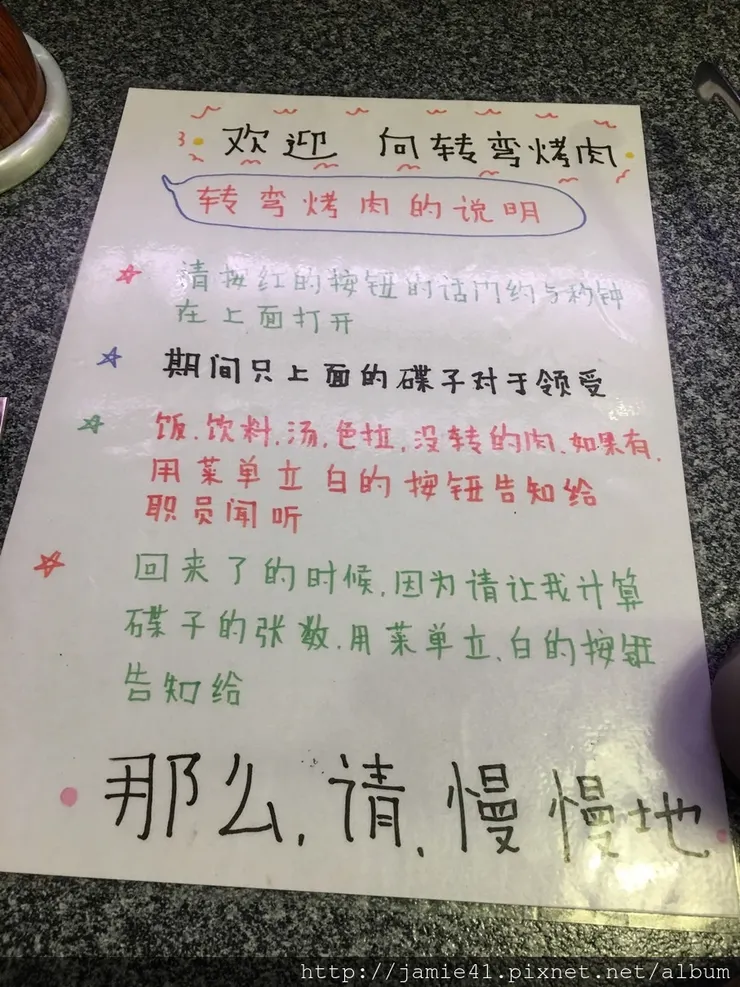 欢迎 向转弯烤肉
转弯烤肉的说明
请按红的按钮的话门约与秒钟
在上面打开
期间只上面的碟子对于领受
饭.饮料.汤.色拉,没转的肉.如果有.
用菜单立白的按钮告知给
职员闻听
回来了的时候,因为请让我计算
碟子的张数.用菜单立.白的按钮
告知给
那么,请.慢慢地
http://jamie41.pixnet.net/album